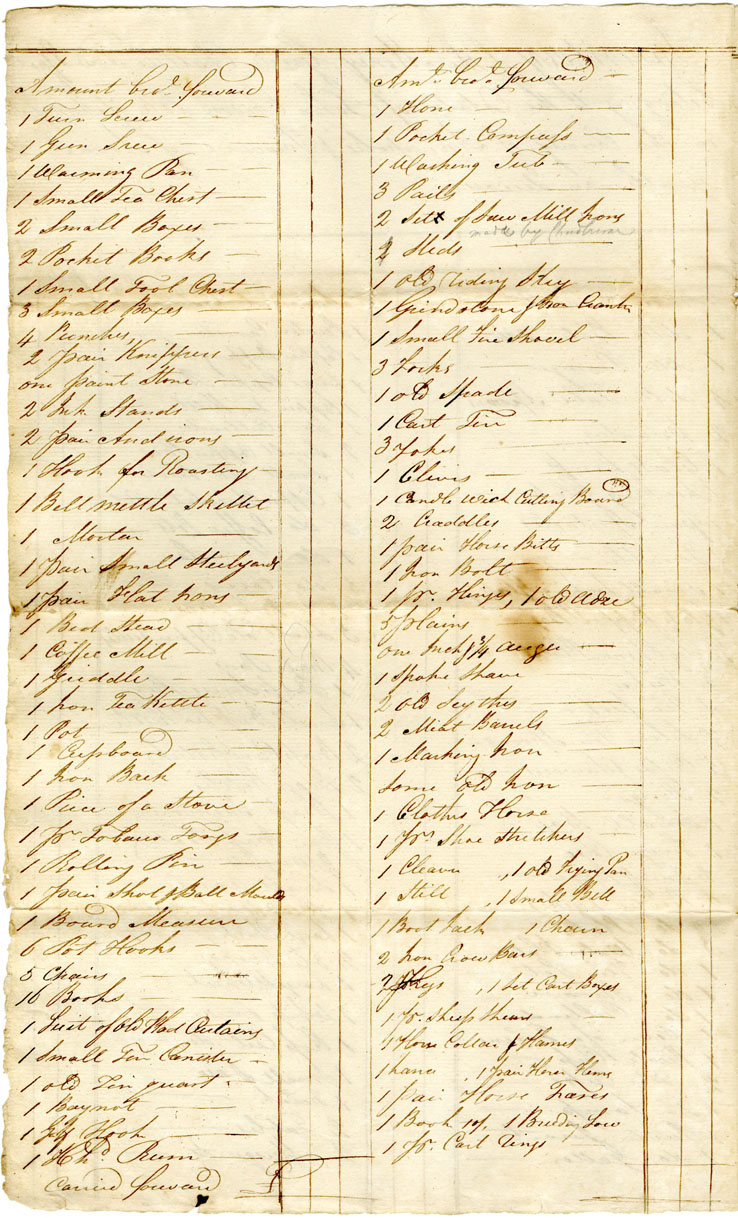 Amount bro.d forward
1 Turn Screw
1 Gun Srew
1 Warming Pan
1 Small Tea Chest
2 Small Boxes
2 Pocket Books
1 Small Tool Chest
3 Small Boxes
4 Punches,
2 pair Knippers
one paint Stone
2 Ink Stands
2 pair Andirons
1 Hook for Roasting
1 Bell mettle Skillet
1 Mortar
1 pair Small Steelyards
1 pair Flat Irons
1 Bed Stead
1 Coffee Mill
1 Griddle
1 Iron Tea Kettle
1 Pot
1 Cupboard
1 Iron Back
1 Piece of a Stove
1 pr Tobacco Tongs
1 Rolling Pin
1 pair Shot & Ball Moulds
1 Board Measure
6 Pot Hooks
5 Chairs
16 Books
1 Suit of Old Curtains
1 Small Tin Canister
1 old Tin quart
1 Baynot
1 Hook
1 Hhd. Rum
Carried forward
Amt. bro.d forward
1 Hone
1 Pocket Compass
1 Washing Tub
3 Pails
2 Sets of Saw Mill Irons
made by
2 Sleds
1 old riding Sley
1 Grindstone & Iron Crank
1 Small Fire Shovel
3 Forks
1 old Spade
1 Cart Tire
3 Yokes
1 Clivis
1 Candle Wick Cutting Board
2 Craddles
1 pair Horse Bitts
1 Iron Bolt
1 pr. Hinges, 1 old adze
5 plains
one Inch & 3/4 auger
1 Spoke Shave
2 old Scythes
2 Meat Barrels
1 Marking Iron
Some old Iron
1 Clothes Horse
1 pr. Shoe Stretchers
1 Cleaver, 1 old Frying Pan
1 Still, 1 Small Bell
1 Boot Jack 1 Chain
2 Iron Crow Bars
2 , 1 Set Cart Boxes
1 pr. Sheep Shears
1 Horse Collar & Hames
1 , 1 pair Horse Hems
1 pair Horse Traces
1 Book , 1 Breeding Sow
1 pr. Cart Rings